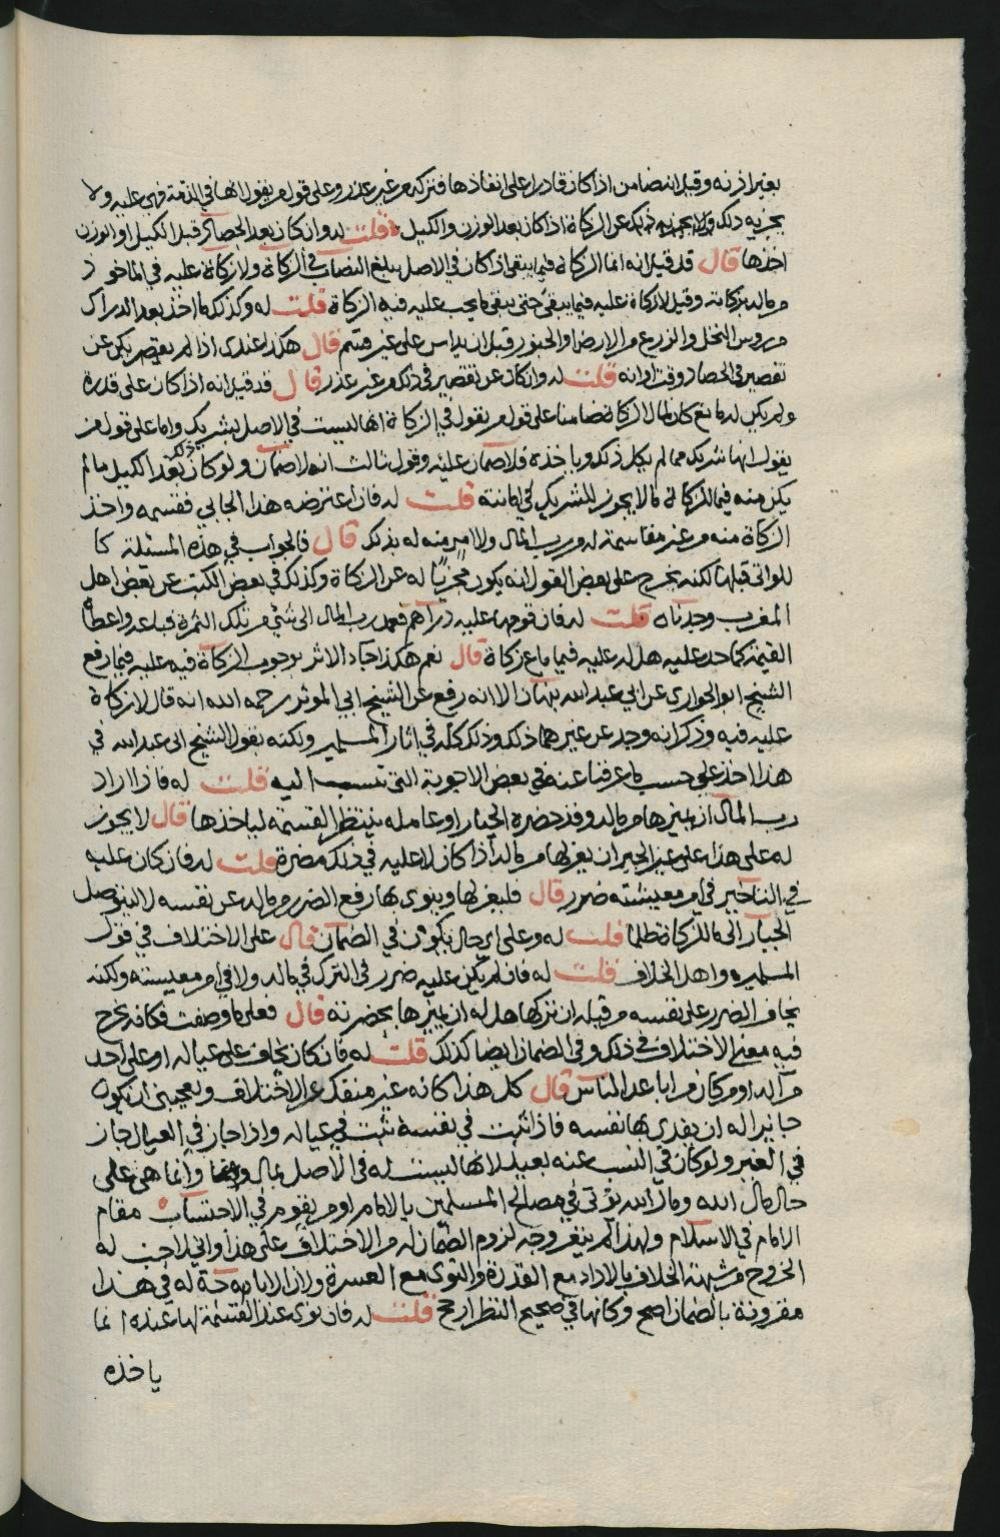 بغير اذنه وقيل انه ضامن اذا كان قادرا على انفاذها فتركه من غير عذر وعلى قول من يقول انها في الذمة فهي عليه ولا
يجزيه ذلك ذلك عن الزكاة اذا كان بعد الوزن والكيل قلت له وان كان بعد الحصاد قبل الكيل او الوزن
اخذها قال قد قيل انه انما الزكاة فيما يبقى اذا كان في الاصل يبلغ النصاب في الزكاة ولا زكاة عليه في الماخوذ
من ماله بزكاته وقيل لا زكاة عليه فيما يبقى حتى يبقى ما يجب عليه فيه الزكاة قلت له وكذلك ما اخذ بعد الدراك
من روس النخل والزرع من الارض او الحبوب قبل ان يداس على غير قسم قال هكذا عندي اذا لم يكن عن
تقصير في الحصاد وقت اوانه قلت له وان كان عن تقصير في ذلك من غير عذر قال قد قيل انه اذا كان على قدرة
ولم يكن له مانع كان لمال الزكاة ضامنا على قول من يقول في الزكاة انها ليست في الاصل بشريك واما على قول من
يقول انها شريك فما لم يكل ذلك وياخذه فلا ضمان عليه وقول ثالث انه لا ضمان ولو كان ذلك بعد الكيل ما لم
يكن منه فيما للزكاة ما لا يجوز للشريك في امانته قلت له فان اعترضه هذا الجابي فقسمه واخذ
الزكاة منه من غير مقاسمة له من رب المال ولا امر منه له بذلك قال فالجواب في هذه المسئلة كما
للواتي قبلها لكنه يخرج على بعض القول انه يكون مجزيا له عن الزكاة وكذلك في بعض الكتب عن بعض اهل
المغرب وجدناه قلت له فان قومه عليه دراهم فعمد رب المال الى شيء من تلك الثمرة فباعه واعطاه
القيمة كما حد عليه هل له عليه فيما باع زكاة قال نعم هكذا جاء الاثر بوجوب الزكاة فيه عليه فيما رفع
الشيخ ابو الحواري عن ابي عبد الله نبهان الا انه رفع عن الشيخ ابي الموثر رحمه الله انه قال لا زكاة
عليه فيه وذكر انه وجد عن غيرهما ذلك وذلك كله في اثار المسلمين ولكنه بقول الشيخ ابي عبد الله في
هذا اخذ على حسب ما عرفنا عنه في بعض الاجوبة التي تنسب اليه قلت له فاذا اراد
رب المال ان يميزها من ماله وقد حضره الجبار او عامله ينتظر القسمة لياخذها قال لا يجوز
له على هذا على غير الجبر ان يعزلها من ماله اذا كان لا عليه في ذلك مضرة قلت له فان كان عليه
في التاخير في امر معيشته ضرر قال فليعزلها وينوي بها رفع الضرر من ماله عن نفسه لا ليتوصل
الجبار الى مال الزكاة ظلما قلت له وعلى اي حال يكون في الضمان قال على الاختلاف في قول
المسلمين واهل الخلاف قلت له فان لم يكن عليه ضرر في الترك في ماله ولا في امر معيشته ولكنه
يخاف الضرر على نفسه من قبله ان تركها هل له ان يميزها بحضرته قال فعلى ما وصفت فكانه يخرج
فيه معنى الاختلاف في ذلك وفي الضمان ايضا كذلك قلت له فان كان يخاف على عياله او على احد
من اله او من كان من اباعد الناس قال كل هذا كانه غير منفك عن الاختلاف ويعجبني ان يكون
جايزا له ان يفدي بها نفسه فاذا ثبت في نفسه ثبت في عياله واذا جاز في العيال جاز
في الغير ولو كان في النسب عنه بعيدا لانها ليست له في الاصل بمال وانما هي على
حال مال الله ومال الله يؤتى في مصالح المسلمين بالامام او من يقوم في الاحتساب مقام
الامام في الاسلام ولهذا لم يتغير وجه لزوم الضمان له من الاختلاف على هذا واني لاحب له
الخروج من شبهة الخلاف بالاداء مع القدرة والنوى مع العسرة ولان الاباحة له في هذا
مقرونة بالضمان اصح وكانها في صحيح النظر ارجح قلت له فان نوى عند القسمة لها عنده انما
ياخذه